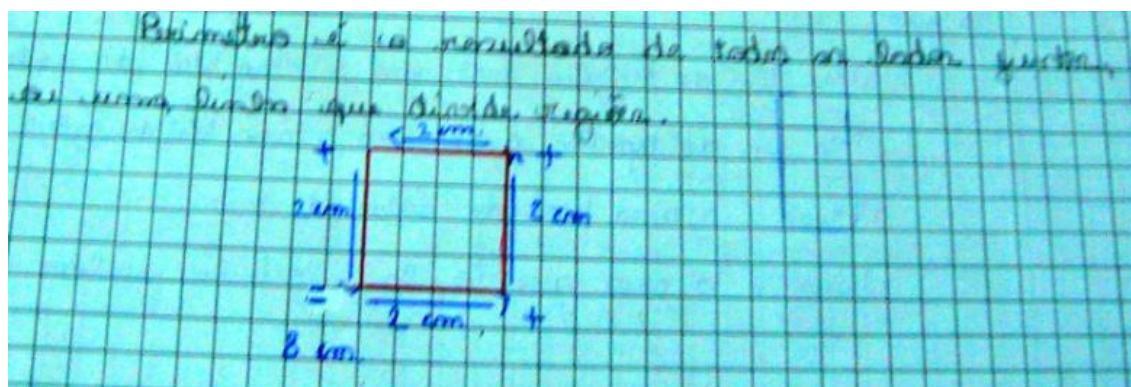 Perimetro é o resultado de todos os lados juntos,
ou uma linha que divide região.
2 cm
+ +
2 cm 2 cm
=
2 cm +
8 cm